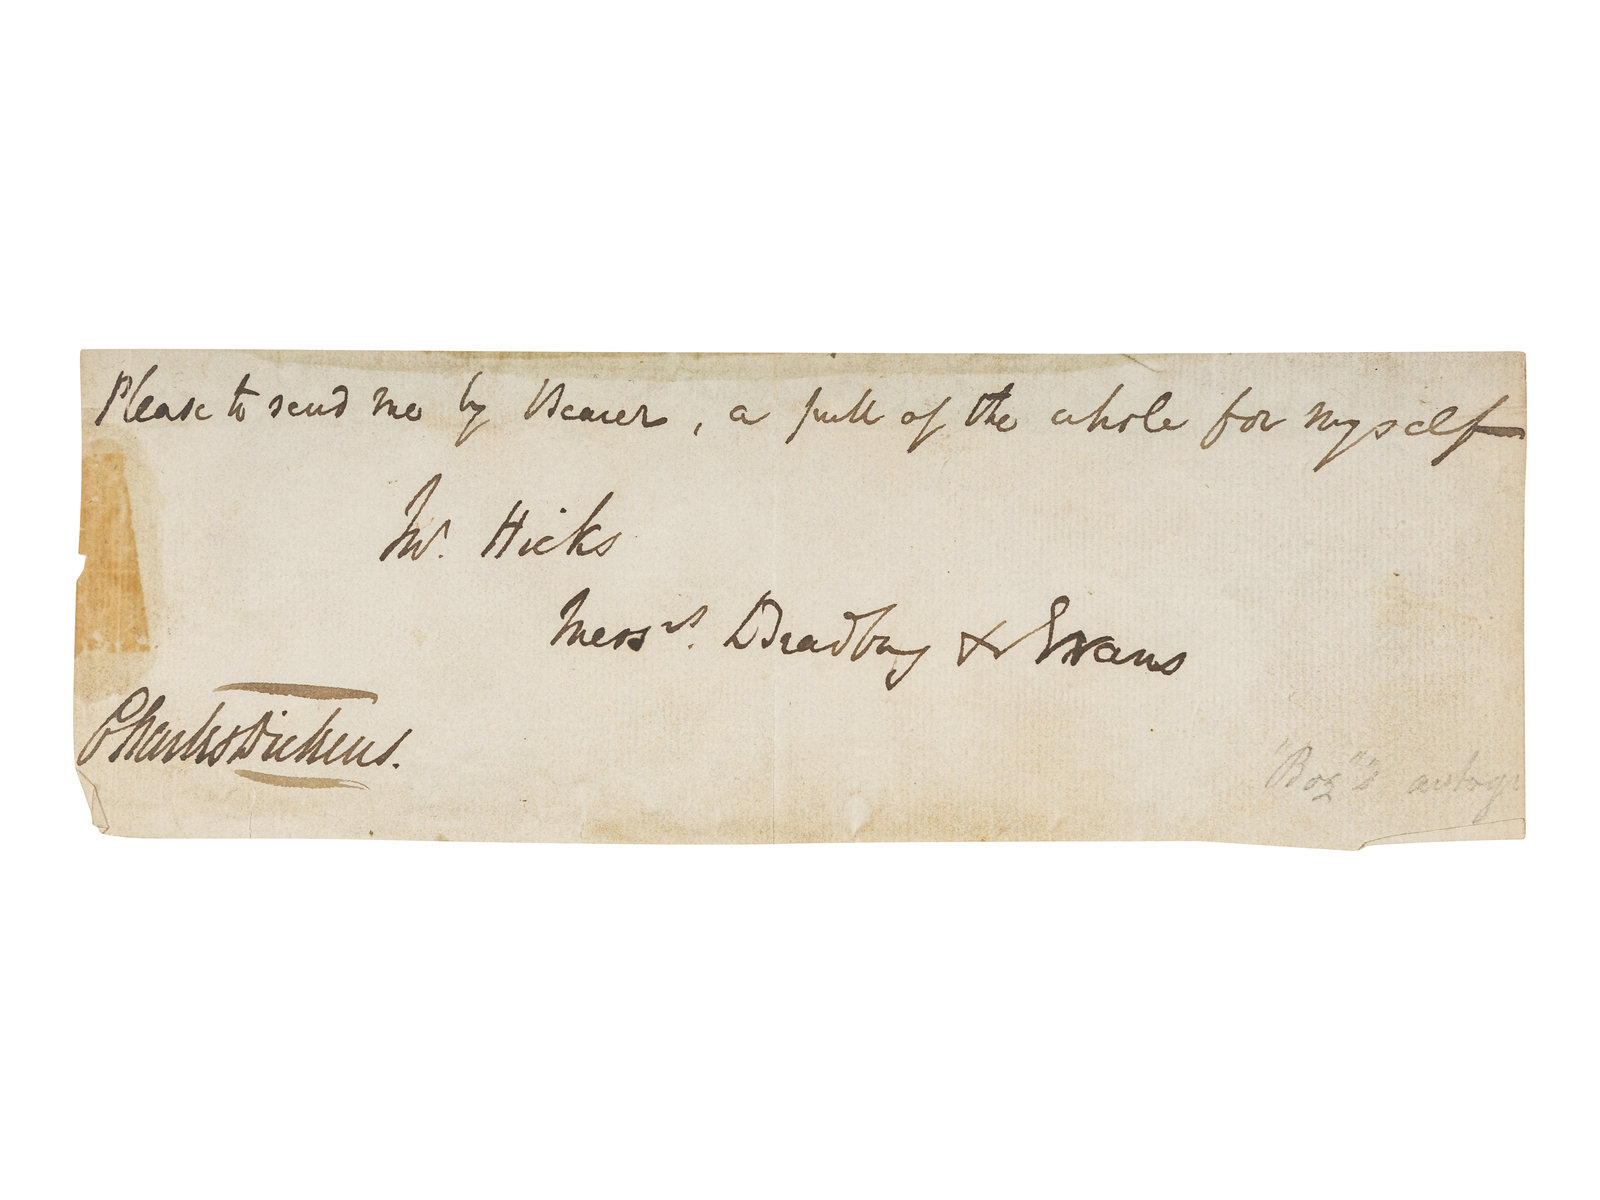 Please to send me by Bearer, a pull of the whole for myself
Mr. Hicks
Messrs. Bradbury & Evans
Charles Dickens.
"Boz"'s autogr